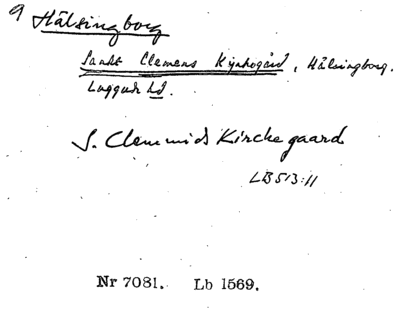 9 Hälsingborg
Sankt Clemens Kyrkogård, Hälsingborg.
Luggude hd.
S. Clemmids Kirckegaard
LB 5 13:11
Nr 7081. Lb 1569.